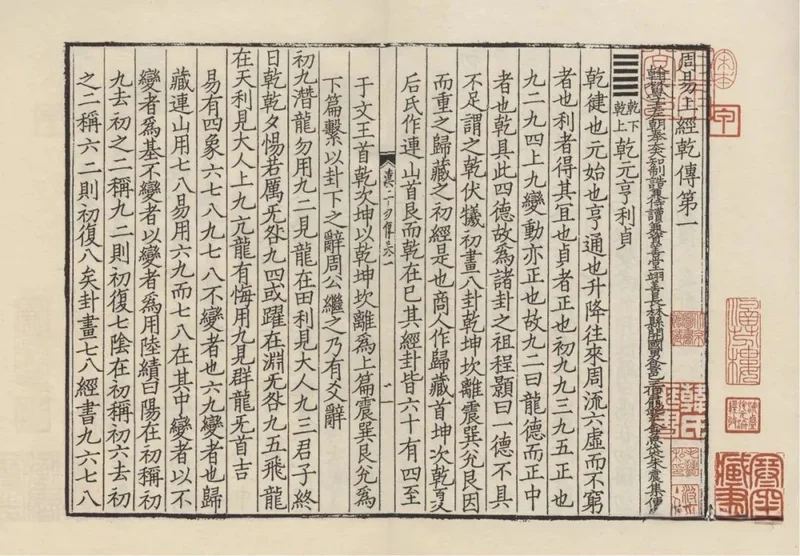 周易上經乾傳第一
朝奉大夫知制誥兼侍讀兼資善堂翊善長林縣開國男食邑魚袋朱震集傳
乾下乾上 乾元亨利貞
乾健也元始也亨通也升降往來周流六虛而不窮
者也利者得其宜也貞者正也初九九三九五正也
九二九四上九變動亦正也故九二曰龍德而正中
者也乾具此四德故爲諸卦之祖程顥曰一德不具
不足謂之乾伏犧初畫八卦乾坤坎離震巽艮兌因
而重之歸藏之初經是也商人作歸藏首坤次乾夏
后氏作連山首艮而乾在巳其經卦皆六十有四至
于文王首乾次坤以乾坤坎離爲上篇震巽艮兌爲
下篇繫以卦下之辭周公繼之乃有爻辭
初九潛龍勿用九二見龍在田利見大人九三君子終
日乾乾夕惕若厲无咎九四或躍在淵无咎九五飛龍
在天利見大人上九亢龍有悔用九見群龍无首吉
易有四象六七八九七八不變者也六九變者也歸
藏連山用七八易用六九而七八在其中變者以不
變者爲基不變者以變者爲用陸績曰陽在初稱初
九去初之二稱九二則初復七陰在初稱初六去初
之二稱六二則初復八矣卦畫七八經書九六七八